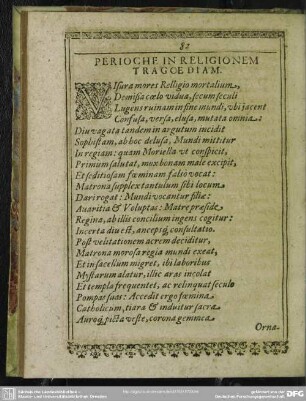 82
PERIOCHE IN RELIGIONEM
TRAGOEDIAM.
VIsura mores Relligio mortalium,
Demissa cœlo vidua, secum seculi
Lugens ruinam in fine mundi, vbi jacent
Confusa, versa, elusa, mutata omnia:
Diu vagata tandem in argutum incidit
Sophistam, ab hoc delusa, Mundi mittitur
In regiam: quam Moriella vt conspicit,
Primum salutat, mox bonam male excipit,
Et seditiosam fœminam falso vocat:
Matrona supplex tantulum sibi locum
Dari rogat: Mundi vocantur filiæ:
Avaritia & Voluptas: Matre præside
Regina, ab illis concilium ingens cogitur:
Incerta diu est, ancepsq́, consultatio.
Post velitationem acrem deciditur,
Matrona morosa regia mundi exeat,
Et in sacellum migret, ibi laboribus
Mystarum alatur, illic aras incolat
Et templa frequentet, ac relinquat seculo
Pompas suas: Accedit ergo fœmina
Catholicum, tiara & induitur sacra
Auroq́, picta veste, corona gemmea
Orna-